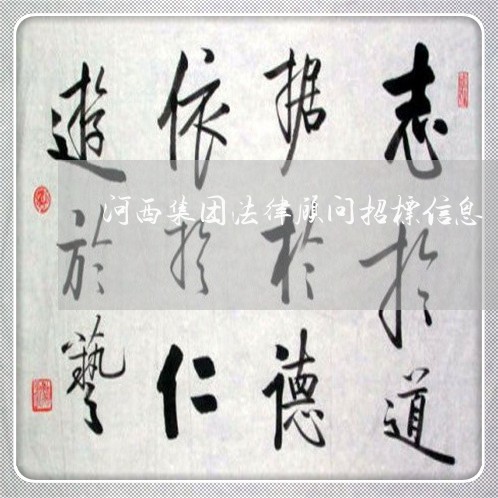 志於道
据於德
依於仁
遊於藝
河西集团法律顾问招标信息